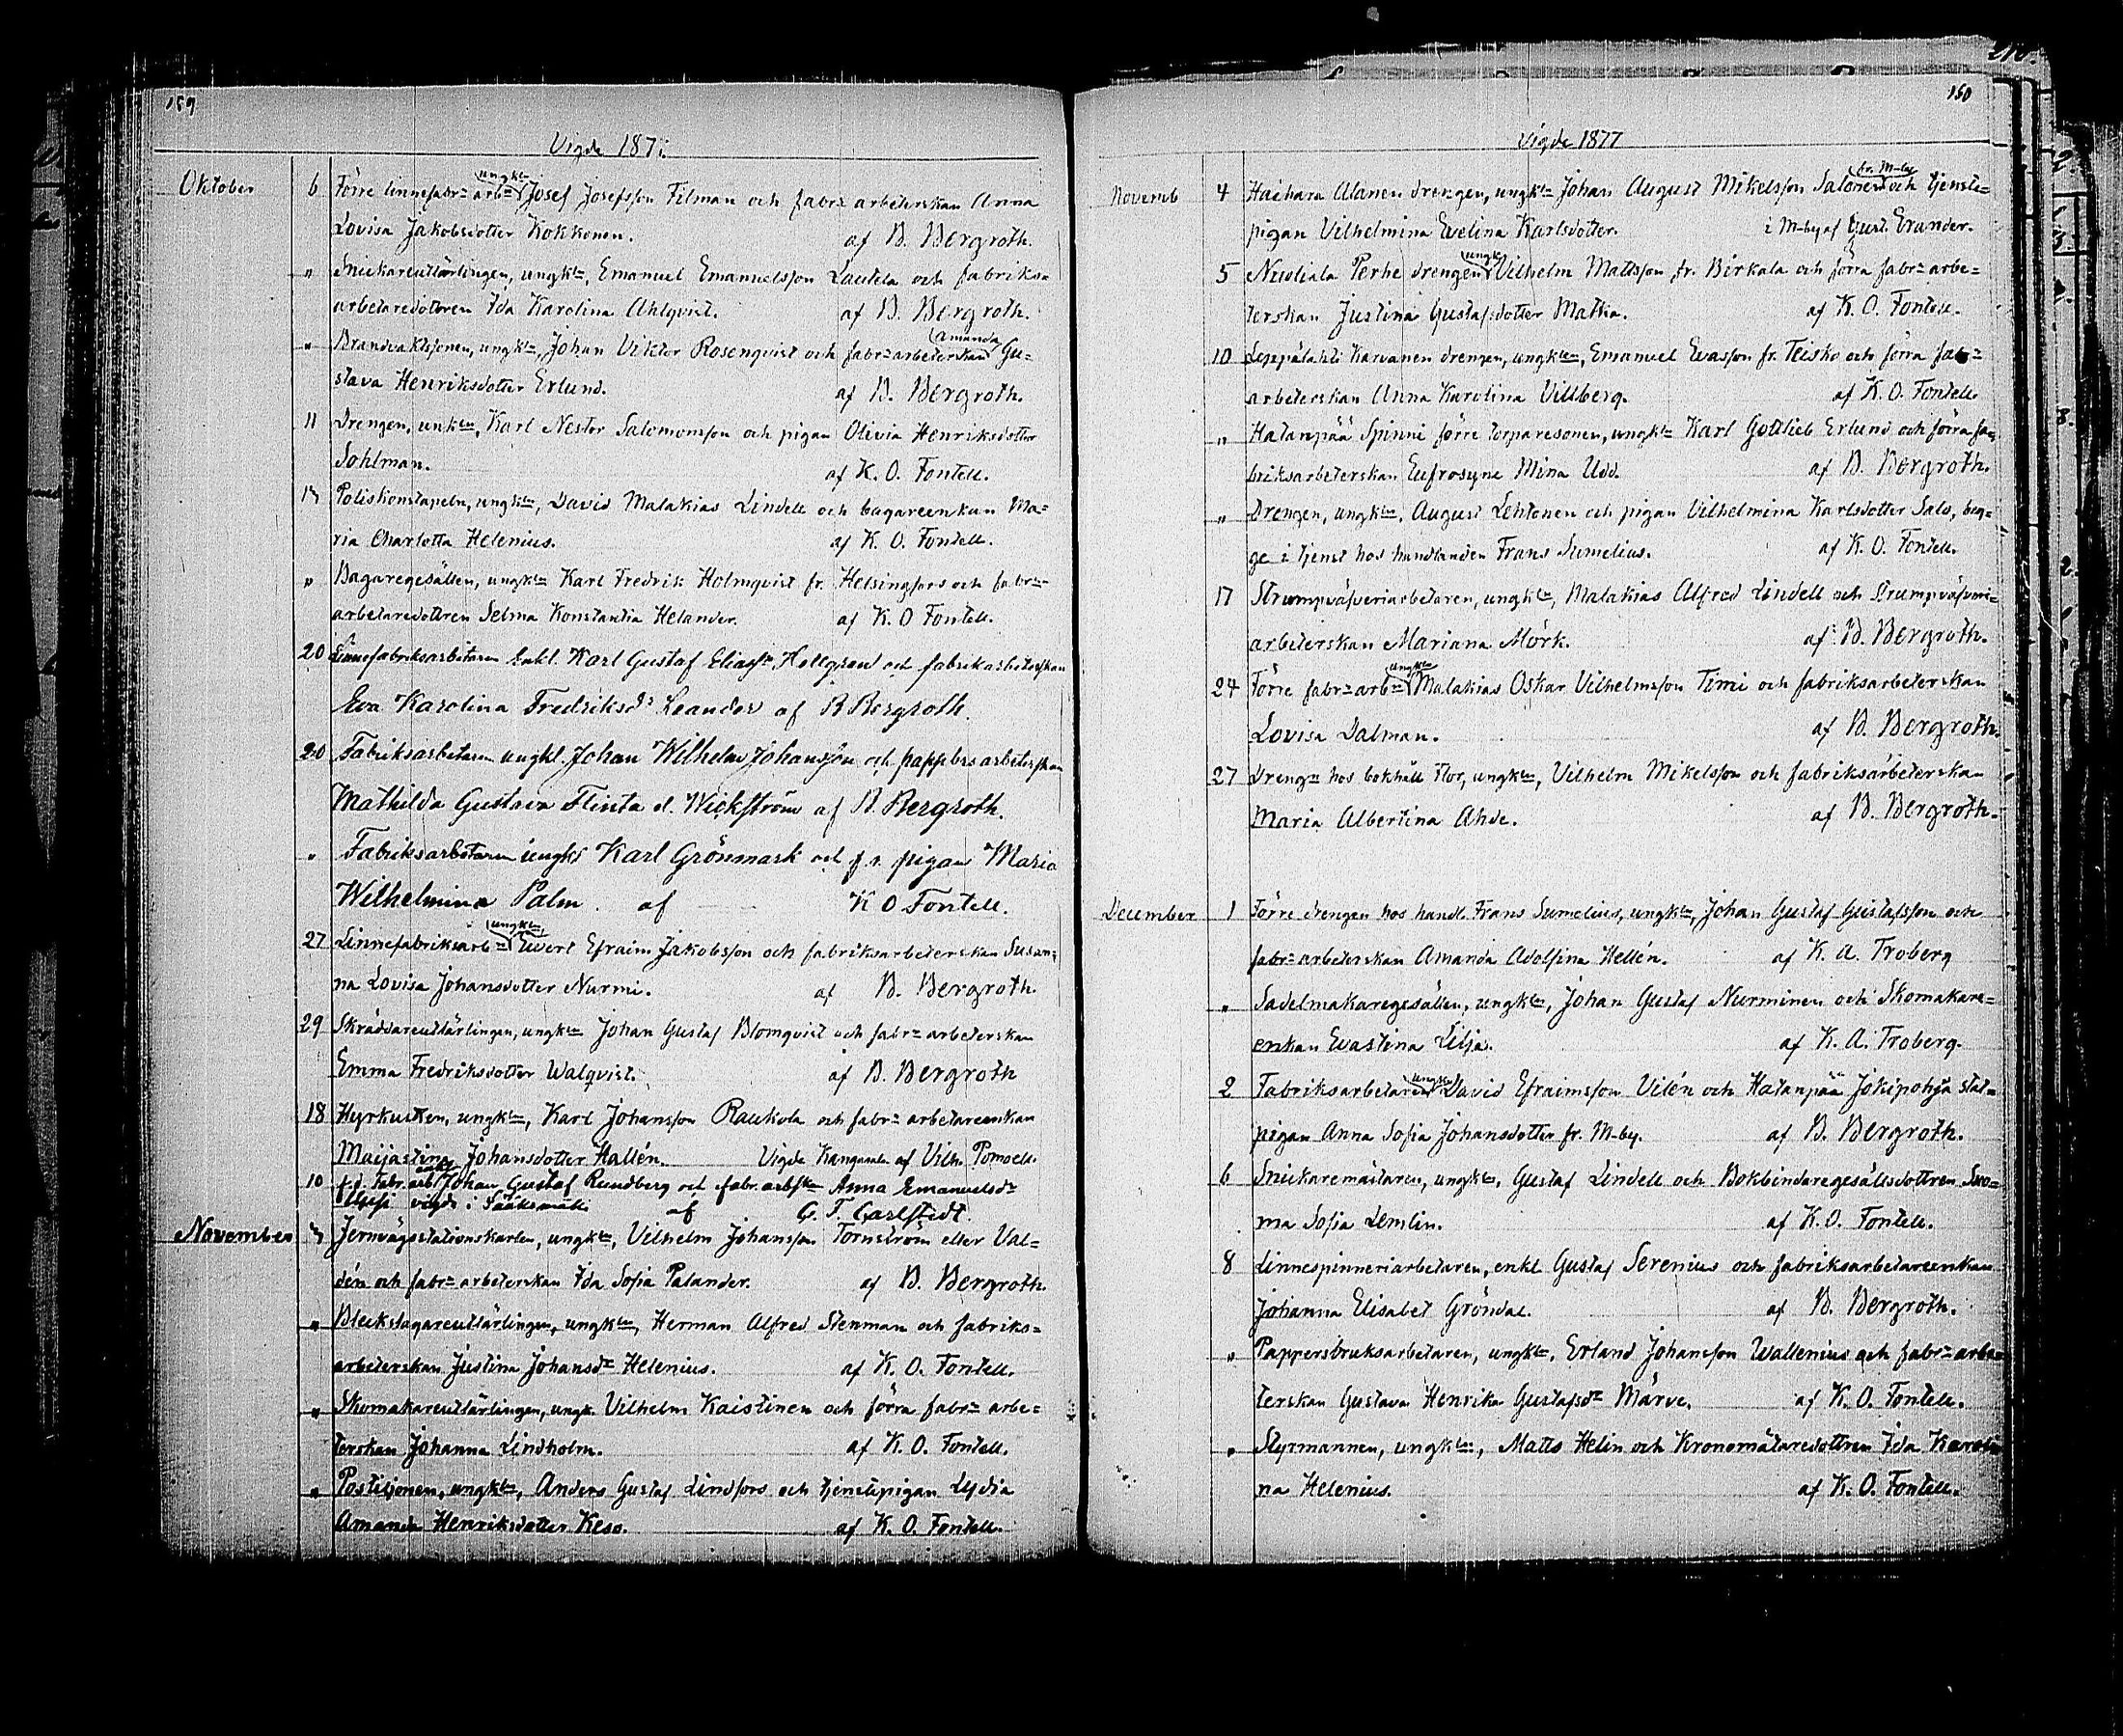 159
Vigde 1877
Oktober 6 Förre linnefabr= arb= ungkln Josef Josefsson Filman och fabr= arbeterskan Anna
Lovisa Jakobsdotter Kokkonen. af B. Bergroth.
„ Snickareutlärlingen, ungkln, Emanuel Emanuelsson Lautela och fabriks=
arbetaredottren Ida Karolina Ahlqvist. af B. Bergroth.
„ Brandvaktssonen, ungkln, Johan Viktor Rosenqvist och fabr= arbeterskan Amanda Gu=
stava Henriksdotter Erlund. af B. Bergroth.
11 Drengen, unkln, Karl Nestor Salomonsson och pigan Olivia Henriksdotter
Sohlman. af K. O. Fontell.
13 Poliskonstapeln, ungkln, David Malakias Lindell och bagareenkan Ma=
ria Charlotta Helenius. af K. O. Fontell.
„ Bagaregesällen, ungkln Karl Fredrik Holmqvist fr. Helsingfors och fabr=
arbetaredottren Selma Konstantia Helander. af K. O Fontell.
20 Linnefabriksarbetaren Enkl. Karl Gustaf Eliass. Hellgren och fabrikarbeterskan
Eva Karolina Fredriksdr Leander af B Bergroth.
20 Fabriksarbetaren ungkl. Johan Wilhelm Johansson och pappbrs arbeterskan
Mathilda Gustava Flinta el. Wickström af B. Bergroth.
„ Fabriksarbetaren ungkl Karl Grönmark och f. pigan Maria
Wilhelmina Palm. af K O Fontell.
27 Linnefabriksarb= ungkln Evert Efraim Jakobsson och fabriksarbeterskan Susan=
na Lovisa Johansdotter Nurmi. af B. Bergroth
29 Skräddareutlärlingen, ungkln Johan Gustaf Blomqvist och fabr= arbeterskan
Emma Fredriksdotter Walqvist. af B. Bergroth
18 Hyrkusken, ungkln, Karl Johansson Raukola och fabr= arbetareenkan
Maijastina Johansdotter Hallén. Vigde Kangasala af Vilh. Pomoell.
10 f.d. Fabr. arb Johan Gustaf Rundberg och fabr. arbskn Anna Emanuelsdr
vigde i Sääksmäki af G. F. Carlstedt.
November 3 Jernvägsstationskarlen, ungkln, Vilhelm Johansson Tornström eller Val=
dén och fabr= arbeterskan Ida Sofia Palander. af B. Bergroth.
„ Bleckslagareutlärlingen, ungkln, Herman Alfred Stenman och fabriks=
arbeterskan Justina Johansdr Helenius. af K. O. Fontell.
„ Skomakareutlärlingen, ungk. Vilhelm Kaistinen och förra fabr= arbe=
terskan Johanna Lindholm. af K. O. Fontell.
„ Postiljonen, ungkln, Anders Gustaf Lindfors och tjenstepigan Lydia
Amanda Henriksdotter Keso. af K. O. Fontell.
150
Vigde 1877
Novemb 4 Haihara Alanen drengen, ungkln Johan August Mikelsson Salonen fr. M-by och tjenste=
pigan Vilhelmina Evelina Karlsdotter. i M-by af Gust. Erander.
5 Nuoliala Perhe drengen ungkln Vilhelm Mattsson fr. Birkala och förra fabr= arbe=
terskan Justina Gustafsdotter Matka. af K. O. Fontell.
10 Karvanen drengen, ungkln, Emanuel Evasson fr. Teisko och förra fabr=
arbeterskan Anna Karolina Villberg. af K. O. Fontell.
„ Hatanpää Spinni förre torparesonen, ungkln Karl Gottlieb Erlund och förra fa=
briksarbeterskan Eufrosyne Mina Udd. af B. Bergroth.
„ Drengen, ungkln, August Lehtonen och pigan Vilhelmina Karlsdotter Salo, beg=
ge i tjenst hos handlanden Frans Sumelius. af K. O. Fontell.
17 Strumpväfveriarbetaren, ungkln, Malakias Alfred Lindell och Strumpväfveri=
arbeterskan Mariana Mörk. af B. Bergroth.
24 Förre fabr= arb= ungkln Malakias Oskar Vilhelmsson Timi och fabriksarbeterskan
Lovisa Dalman. af B. Bergroth.
27 Drengn hos bokhåll Flor, ungkln, Vilhelm Mikelsson och fabriksarbeterskan
Maria Albertina Ahde. af B. Bergroth.
December 1 Förre drengen hos handl. Frans Sumelius, ungkln, Johan Gustaf Gustafsson och
fabr= arbeterskan Amanda Adolfina Hellén. af K. A. Froberg
„ Sadelmakaregesällen, ungkln, Johan Gustaf Nurminen och Skomakare=
enkan Evastina Lilja. af K. A. Froberg.
2 Fabriksarbetaren ungkln David Efraimsson Vilén och Hatanpää Jokipohja stat=
pigan Anna Sofia Johansdotter fr. M-by. af B. Bergroth.
6 Snickaremästaren, ungkln, Gustaf Lindell och Bokbindaregesällsdottren Suo=
ma Sofia Lemlin. af K. O. Fontell.
8 Linnespinneriarbetaren, enkl Gustaf Serenius och fabriksarbetareenkan
Johanna Elisabet Gröndal. af B. Bergroth.
„ Pappersbruksarbetaren, ungkln, Erland Johansson Wallenius och fabr= arbe=
terskan Gustava Henrika Gustafsdr Märve. af K. O. Fontell.
„ Styrmannen, ungkln, Matts Helin och Kronomätaredottren Ida Karoli
na Helenius. af K. O. Fontell.